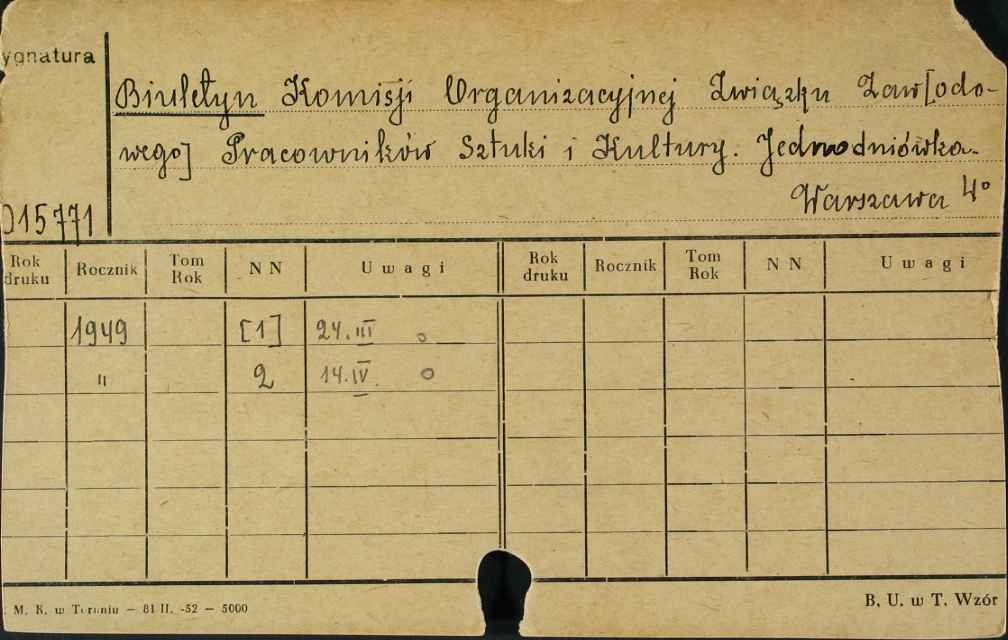 ygnatura
Biuletyn Komisji Organizacyjnej Związku Zaw[odo-
wego] Pracowników Sztuki i Kultury. Jednodniówka.
Warszawa 4°
015771
Rok druku Rocznik Tom Rok NN Uwagi Rok druku Rocznik Tom Rok NN Uwagi
1949 [1] 24.III o
" 2 14.IV. o
M. K. w Toruniu — 81 II. -52 — 5000
B. U. w T. Wzór